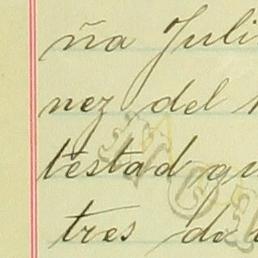 ña Juli
nez del
testad qu
tres do